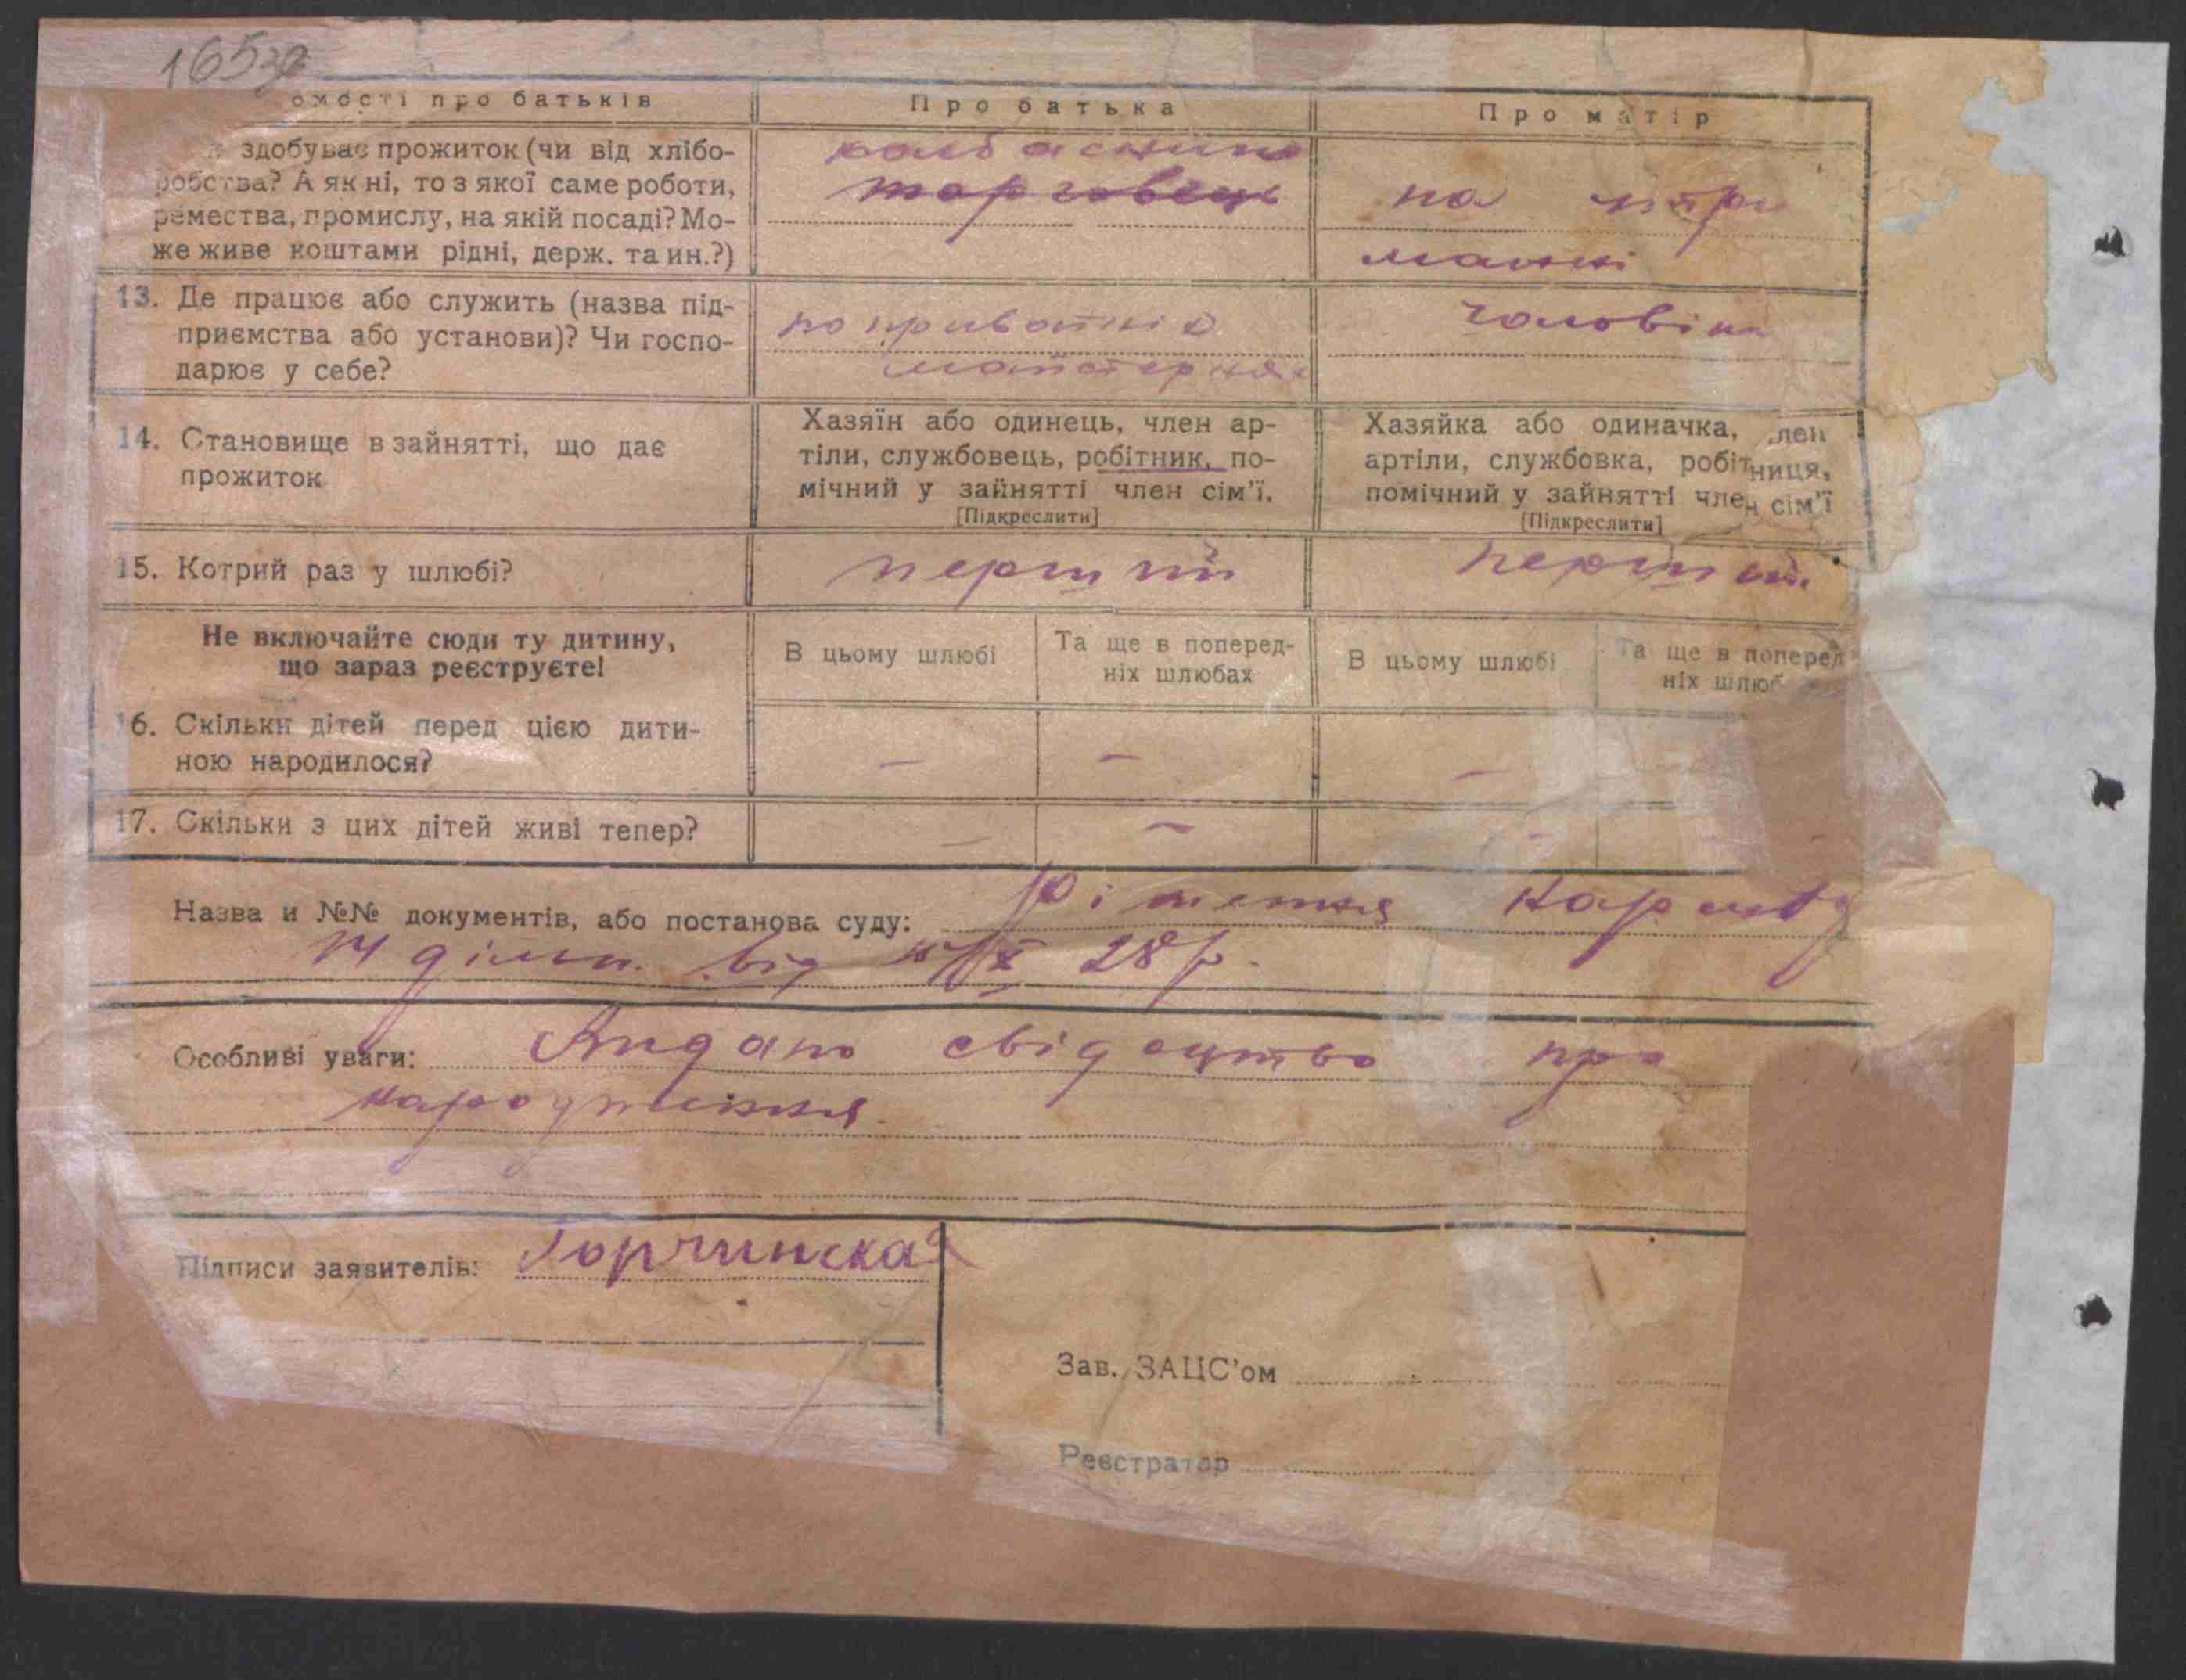 165зв
омості про батьків
Про батька
Про матір
здобуває прожиток (чи від хлібо-
робства? А як ні, то з якої саме роботи,
ремества, промислу, на якій посаді? Мо-
же живе коштами рідні, держ. та ин.?)
ковбасник
торговець
на утри
манні
13. Де працює або служить (назва під-
приємства або установи)? Чи госпо-
дарює у себе?
по приватніх
майстернях
чоловіка
14. Становище в зайнятті, що дає
прожиток
Хазяїн або одинець, член ар-
тіли, службовець, робітник, по-
мічний у зайнятті член сім'ї.
[Підкреслити]
Хазяйка або одиначка, член
артіли, службовка, робітниця,
помічний у зайнятті член сім'ї
[Підкреслити]
15. Котрий раз у шлюбі?
перший
перший
Не включайте сюди ту дитину,
що зараз реєструєте!
В цьому шлюбі
Та ще в поперед-
ніх шлюбах
В цьому шлюбі
Та ще в поперед
ніх шлюб
16. Скільки дітей перед цією дити-
ною народилося?
–
–
–
17. Скільки з цих дітей живі тепер?
–
–
–
–
Назва и №№ документів, або постанова суду: Рішення Нарсуду
14 дільн. від X 28 р.
Особливі уваги: Видано свідоцтво про
народження.
Підписи заявителів: Горчинская
Зав. ЗАЦС'ом
Реєстратор